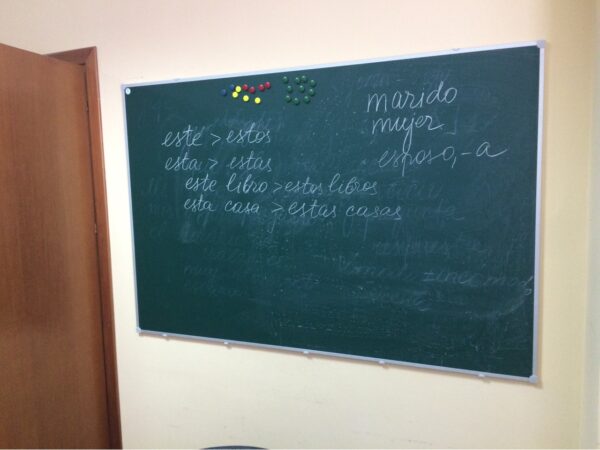 este > estos
esta > estas
este libro > estos libros
esta casa > estas casas
marido
mujer
esposo, -a